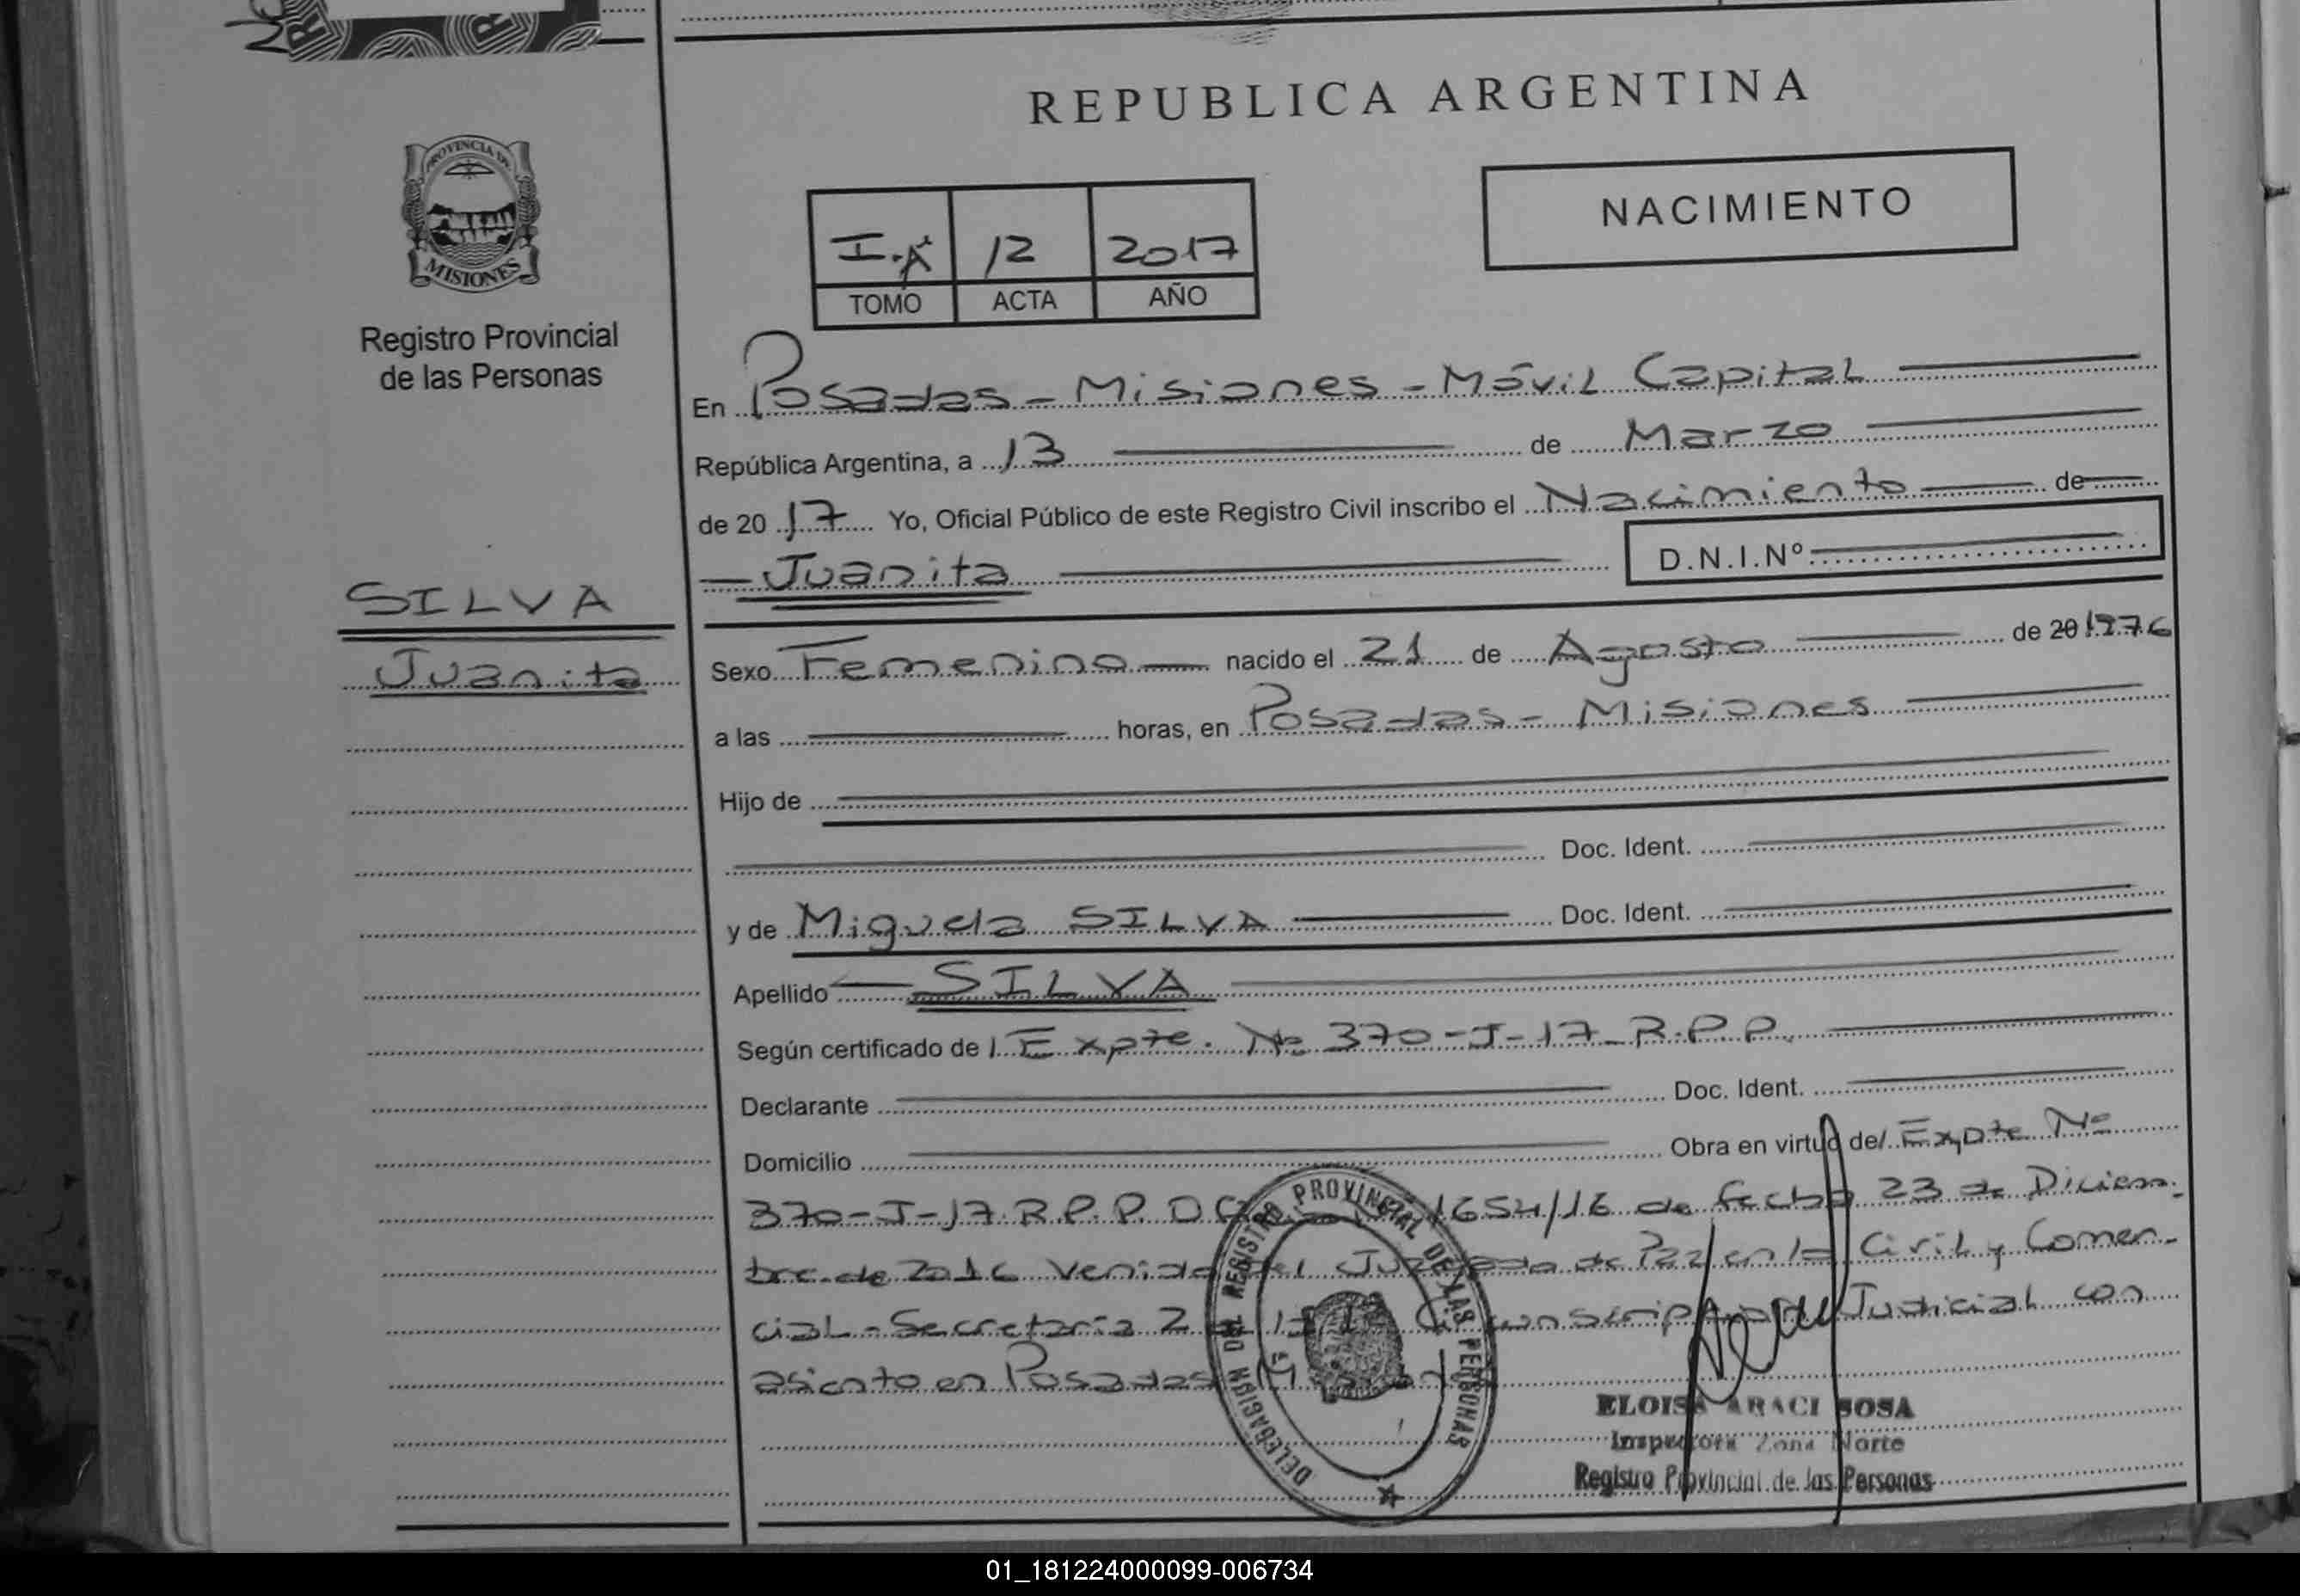 REPUBLICA ARGENTINA
PROVINCIA DE
MISIONES
Registro Provincial
de las Personas
NACIMIENTO
I.A 12 2017
TOMO ACTA AÑO
En Posadas - Misiones - Móvil Capital
República Argentina, a 13 de Marzo
de 20 17 Yo, Oficial Público de este Registro Civil inscribo el Nacimiento de
Juanita D.N.I.Nº
SILVA
Juanita
Sexo Femenino nacido el 21 de Agosto de 20 1976
a las horas, en Posadas - Misiones
Hijo de
Doc. Ident.
y de Miguela SILVA Doc. Ident.
Apellido SILVA
Según certificado de l Expte. Nº 370-J-17 R.P.P.
Declarante Doc. Ident.
Domicilio Obra en virtud del Expte Nº
370-J-17 R.P.P. 1654/16 de fecha 23 de Diciem-
bre de 2016 venido del Juzgado de Paz en lo Civil y Comer-
cial - Secretaría 2 Circunscripción Judicial con
asiento en Posadas
DELEGACION DEL REGISTRO PROVINCIAL DE LAS PERSONAS
ELOISA ARACI SOSA
Inspectora Zona Norte
Registro Provincial de las Personas
01_181224000099-006734